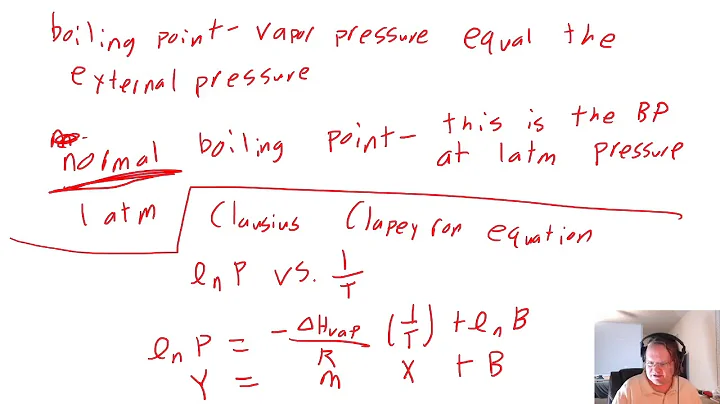 boiling point- vapor pressure equal the
external pressure
normal boiling point- this is the BP
at 1atm pressure
1 atm Clausius Clapeyron equation
ln P vs. 1/T
ln P = -ΔHvap/R (1/T) + ln B
Y = m x + B